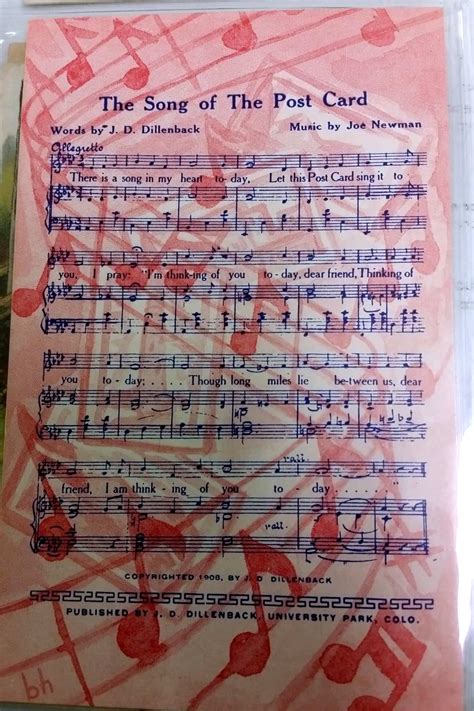 The Song of The Post Card
Words by J. D. Dillenback Music by Joe Newman
Allegretto
There is a song in my heart to-day, Let this Post Card sing it to
you, I pray: "I'm think-ing of you to-day, dear friend, Thinking of
you to-day; . . . . . Though long miles lie be-tween us, dear
rall.
friend, I am think-ing of you to-day . . . . . "
rall.
COPYRIGHTED 1908, BY J. D. DILLENBACK
PUBLISHED BY J. D. DILLENBACK, UNIVERSITY PARK, COLO.
bh